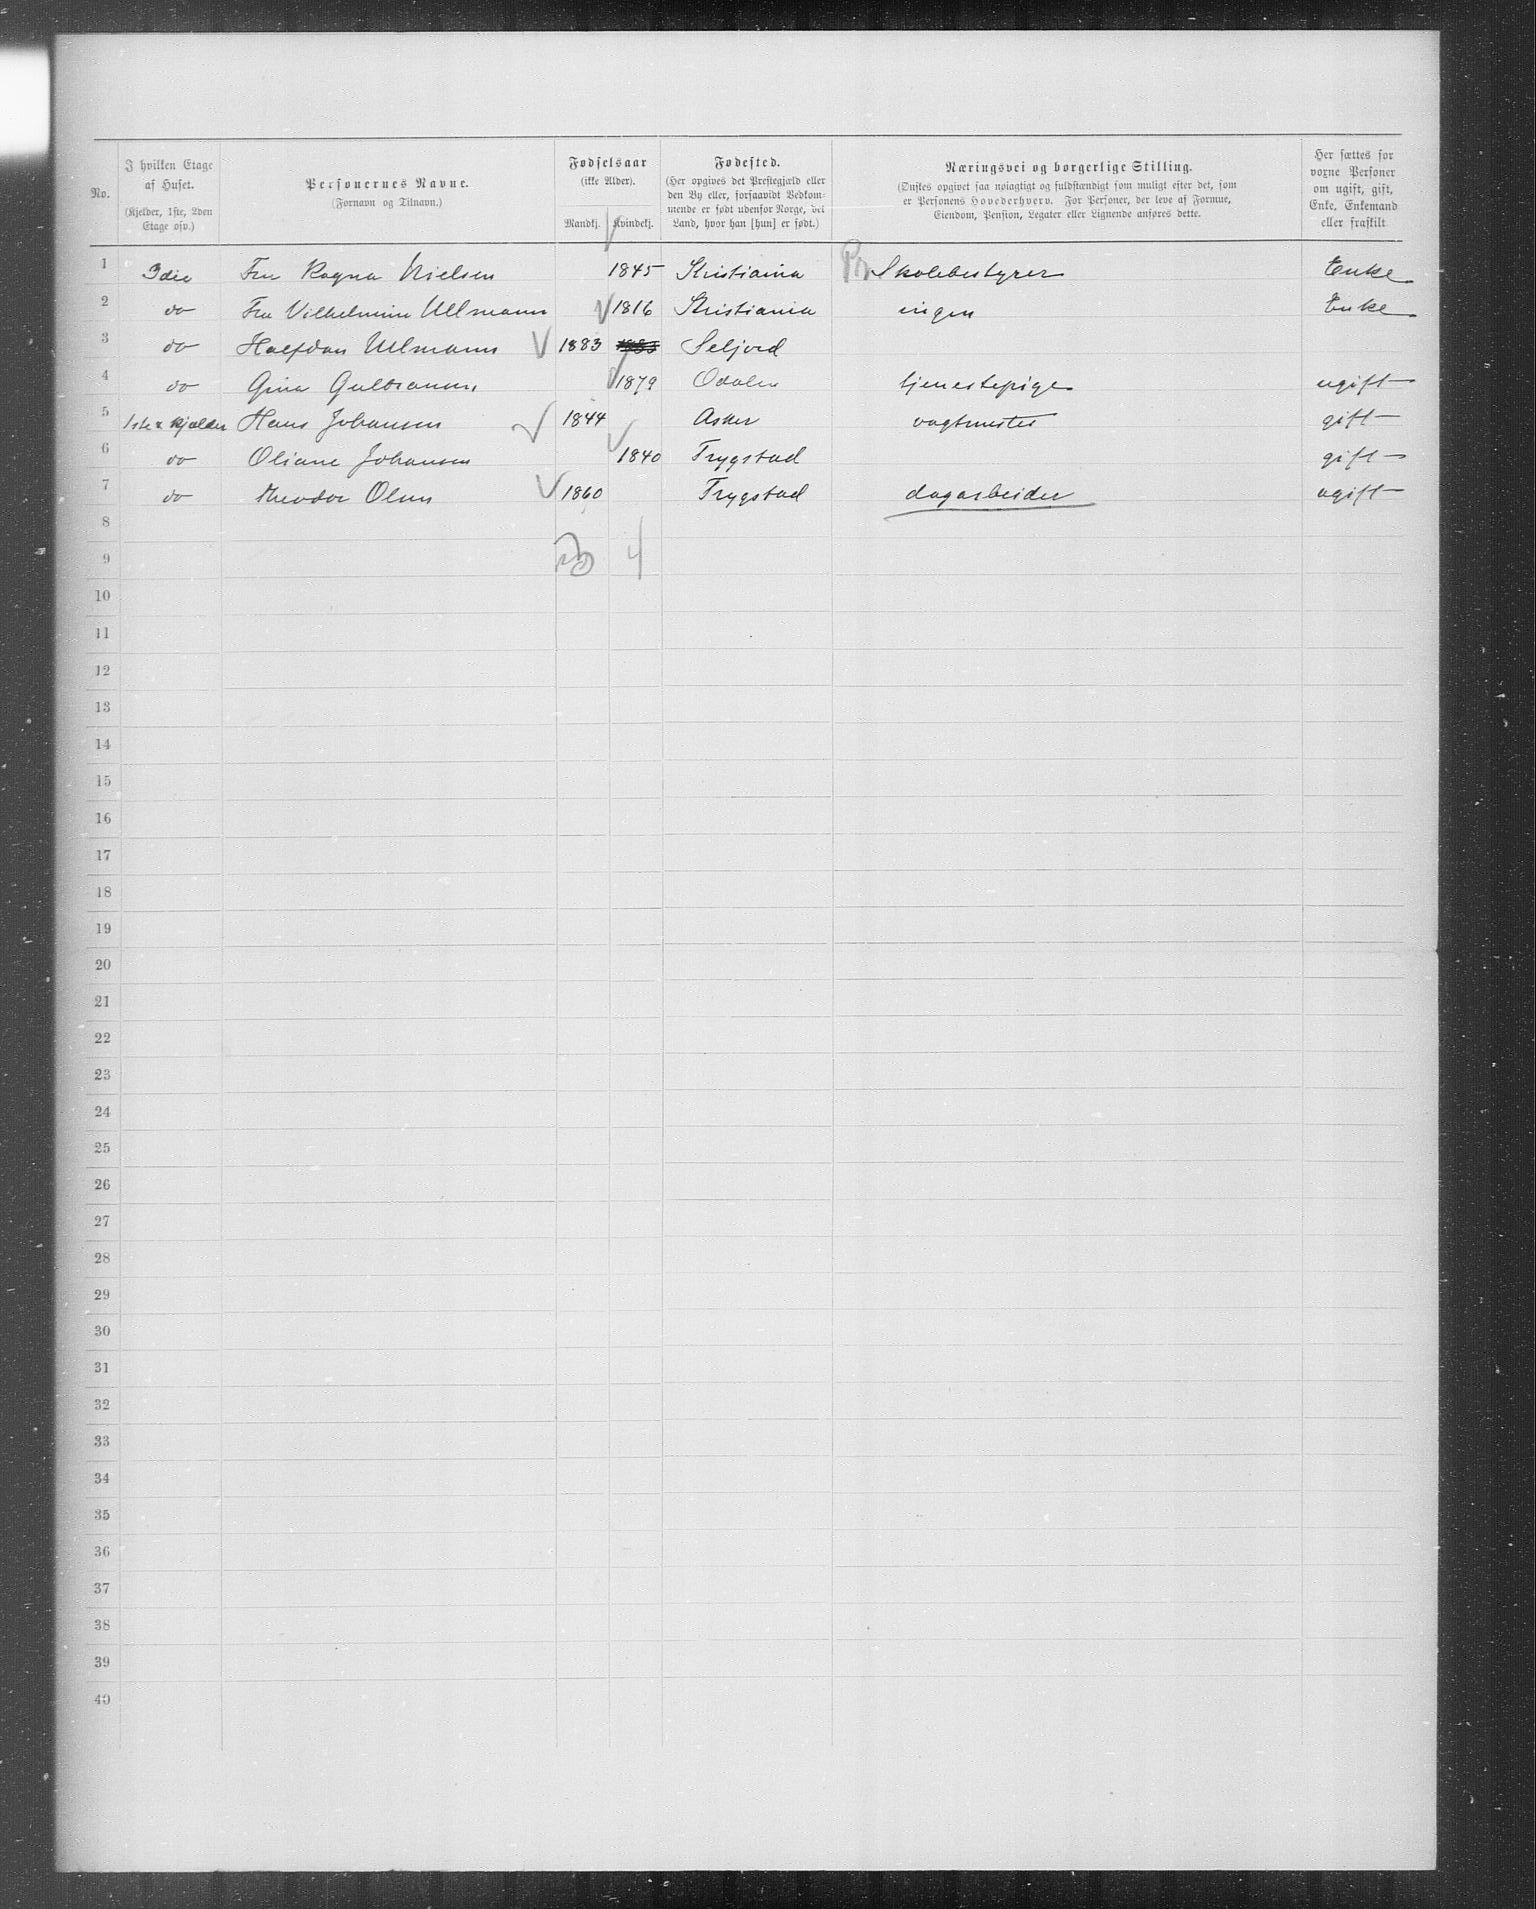 No. I hvilken Etage af Huset. (Kjelder, 1ste, 2den Etage osv.) Personernes Navne. (Fornavn og Tilnavn.) Fødselsaar (ikke Alder). Mandkj. Kvindekj. Fødested. (Her opgives det Prestegjæld eller den By eller, forsaavidt Vedkommende er født udenfor Norge, det Land, hvor han [hun] er født.) Næringsvei og borgerlige Stilling. (Ønskes opgivet saa nøiagtigt og fuldstændigt som muligt efter det, som er Personens Hovederhverv. For Personer, der leve af Formue, Eiendom, Pension, Legater eller Lignende anføres dette. Her sættes for voxne Personer om ugift, gift, Enke, Enkemand eller fraskilt
1 3die Fru Ragna Nielsen 1845 Kristiania Skolebestyrer Enke
2 do Fru Vilhelmine Ullmann 1816 Kristiania ingen Enke
3 do Halfdan Ullmann 1883 1883 Seljord
4 do Gina Gulbransen 1879 Odalen tjenestepige ugift
5 1ste & Kjælder Hans Johansen 1844 Asker vagtmester gift
6 do Oliane Johansen 1840 Trygstad gift
7 do Theodor Olsen 1860 Trygstad dagarbeider ugift
8
9 4
10
11
12
13
14
15
16
17
18
19
20
21
22
23
24
25
26
27
28
29
30
31
32
33
34
35
36
37
38
39
40